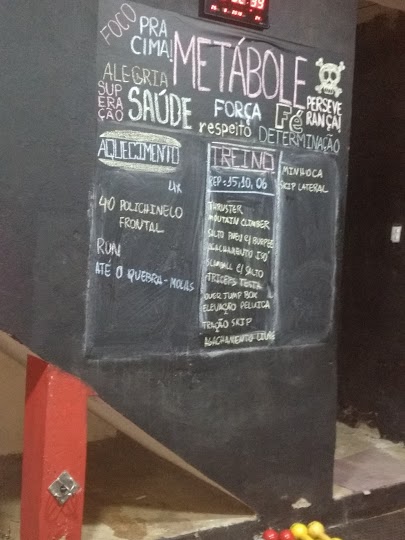 FOCO
PRA
CIMA!
METÁBOLE
ALEGRIA
SUP
ERA
ÇÃO
SAÚDE
FORÇA
respeito
Fé
PERSEVE
RANÇA!
DETERMINAÇÃO
AQUECIMENTO
4X
40 POLICHINELO
FRONTAL
RUN
ATÉ O QUEBRA-MOLAS
TREINO
REP=15,10,06
THRUSTER
MOUTAIN CLIMBER
SALTO PNEU C/ BURPEE
AGACHAMENTO ISO
C/ SALTO
TRICEPS TESTA
OVER JUMP BOX
ELEVAÇÃO PELVICA
TRAÇÃO SKIP
AGACHAMENTO LIVRE
MINHOCA
SKIP LATERAL